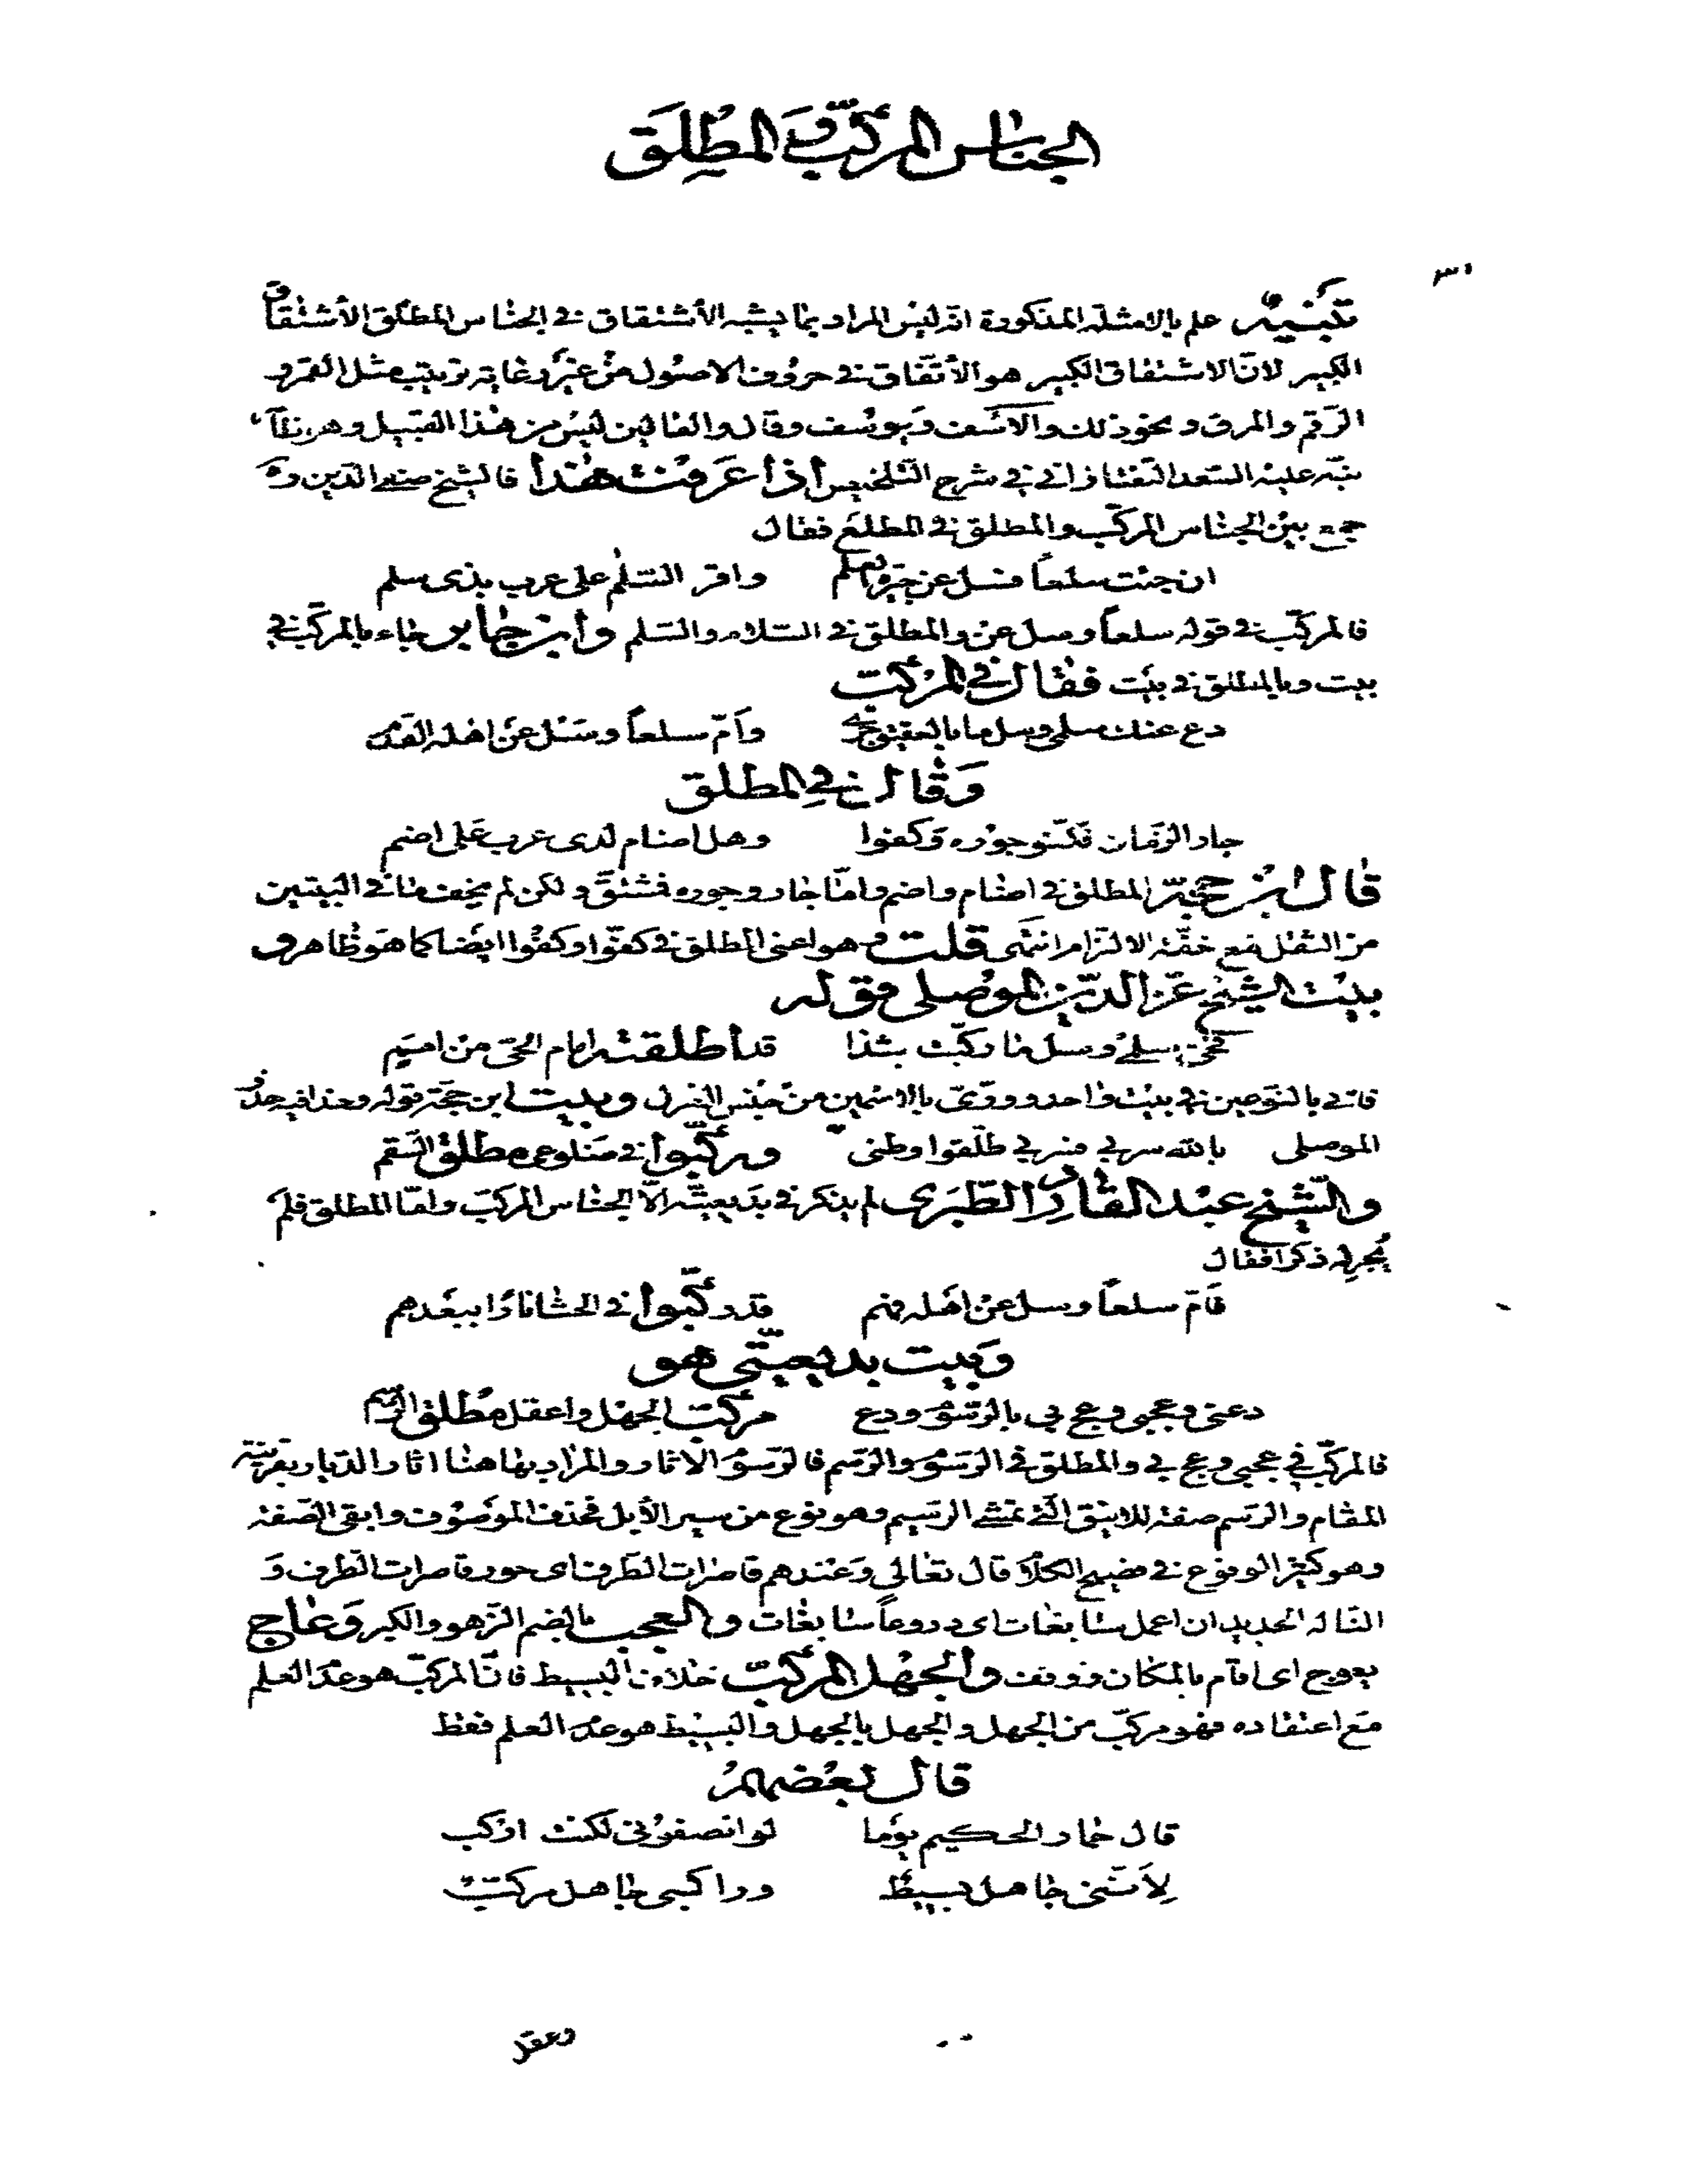 الجناس المركّب والمطلق
تنبيه علم بالامثلة المذكورة انه ليس المراد بما يشبه الأشتقاق في الجناس المطلق الأشتقاق
الكبير لانّ الاشتقاق الكبير هو الأتّفاق في حروف الاصول من غير رعاية ترتيب مثل القمر و
الرّقم والمرق و نحو ذلك والاسف ويوسف وقال والقالين ليس من هذا القبيل وهو
نبّه عليه السّعد التفتازاني في شرح التلخيص اذا عرفت هذا فالشيخ صفي الدّين ره
جمع بين الجناس المركّب والمطلق في المطلع فقال
ان جئت سلعاً فسل عن جيرة العلم واقر السّلم على عرب بذى سلم
فالمركّب في قوله سلعاً وسل عن والمطلق في السّلام والسّلم وابن جابر جاء بالمركّب في
بيت وبالمطلق في بيت فقال في المركّب
دع عنك سلمى وسل ما بالعقيق جرى وأمّ سلعاً وسَل عن اهله القدم
وقال في المطلق
جار الزمان فكفّوا جوره وكفوا وهل اضام لدى عرب على اضم
قال ابن حجّة المطلق في اضام واضم وامّا جار وجوره فمشتقّ ولكن لم يخف ما في البيتين
من الثقل مع خفّة الالتزام انتهى قلت وهو اعنى المطلق في كفّوا وكفُوا ايضا كما هو ظاهر و
بيت الشيخ عزّ الدّين الموصلي قوله
سلمى وسل ما ركّبت بشذا قد اطلقته امام الحىّ من امم
فاتى بالنوعين في بيت واحد وورّى بالاسمين من جنس الغزل وبيت ابن حجّة قوله وحذا فيه حذو
الموصلى بالله سر بي فسربي طلّقوا وطنى وركّبوا في ضلوعى مطلق السّقم
والشيخ عبد القادر الطّبرى لم يذكر في بديعيته الّا الجناس المركّب وامّا المطلق فلم
يُجرِ له ذكرا فقال
فأمّ سلعاً وسل عن اهله فهم قد ركّبوا في الحشا نارًا ببعدهم
وبيت بديعيّتى هو
دعنى وعجبى وعج بي بالرّسوم ودع مركّب الجهل واعقل مُطلق الرّسم
فالمركّب في عجبى وعج بي والمطلق في الرّسوم والرّسم فالرّسوم الاثار والمراد بها هنا اثار الديار بقرينة
المقام والرّسم صفة للاينق الّتي تمشى الرّسيم وهو نوع من سير الأبل فحذف الموصوف وابقى الصّفة
وهو كثير الوقوع في فصيح الكلام قال تعالى وعندهم قاصرات الطّرف اى حور قاصرات الطّرف وَ
النّا له الحديد ان اعمل سابغات اى دروعاً سابغات والعجب بالضم الزّهو والكبر وعاج
يعوج اى اقام بالمكان ووقف والجهل المركّب خلاف البسيط فانّ المركّب هو عدم العلم
مع اعتقاده فهو مركّب من الجهل والجهل بالجهل والبسيط هو عدم العلم فقط
قال بعضهم
قال حمار الحكيم يومًا لو انصفونى لكنت اركب
لِأنّنى جاهل بسيط وراكبى جاهل مركّب
وعقل